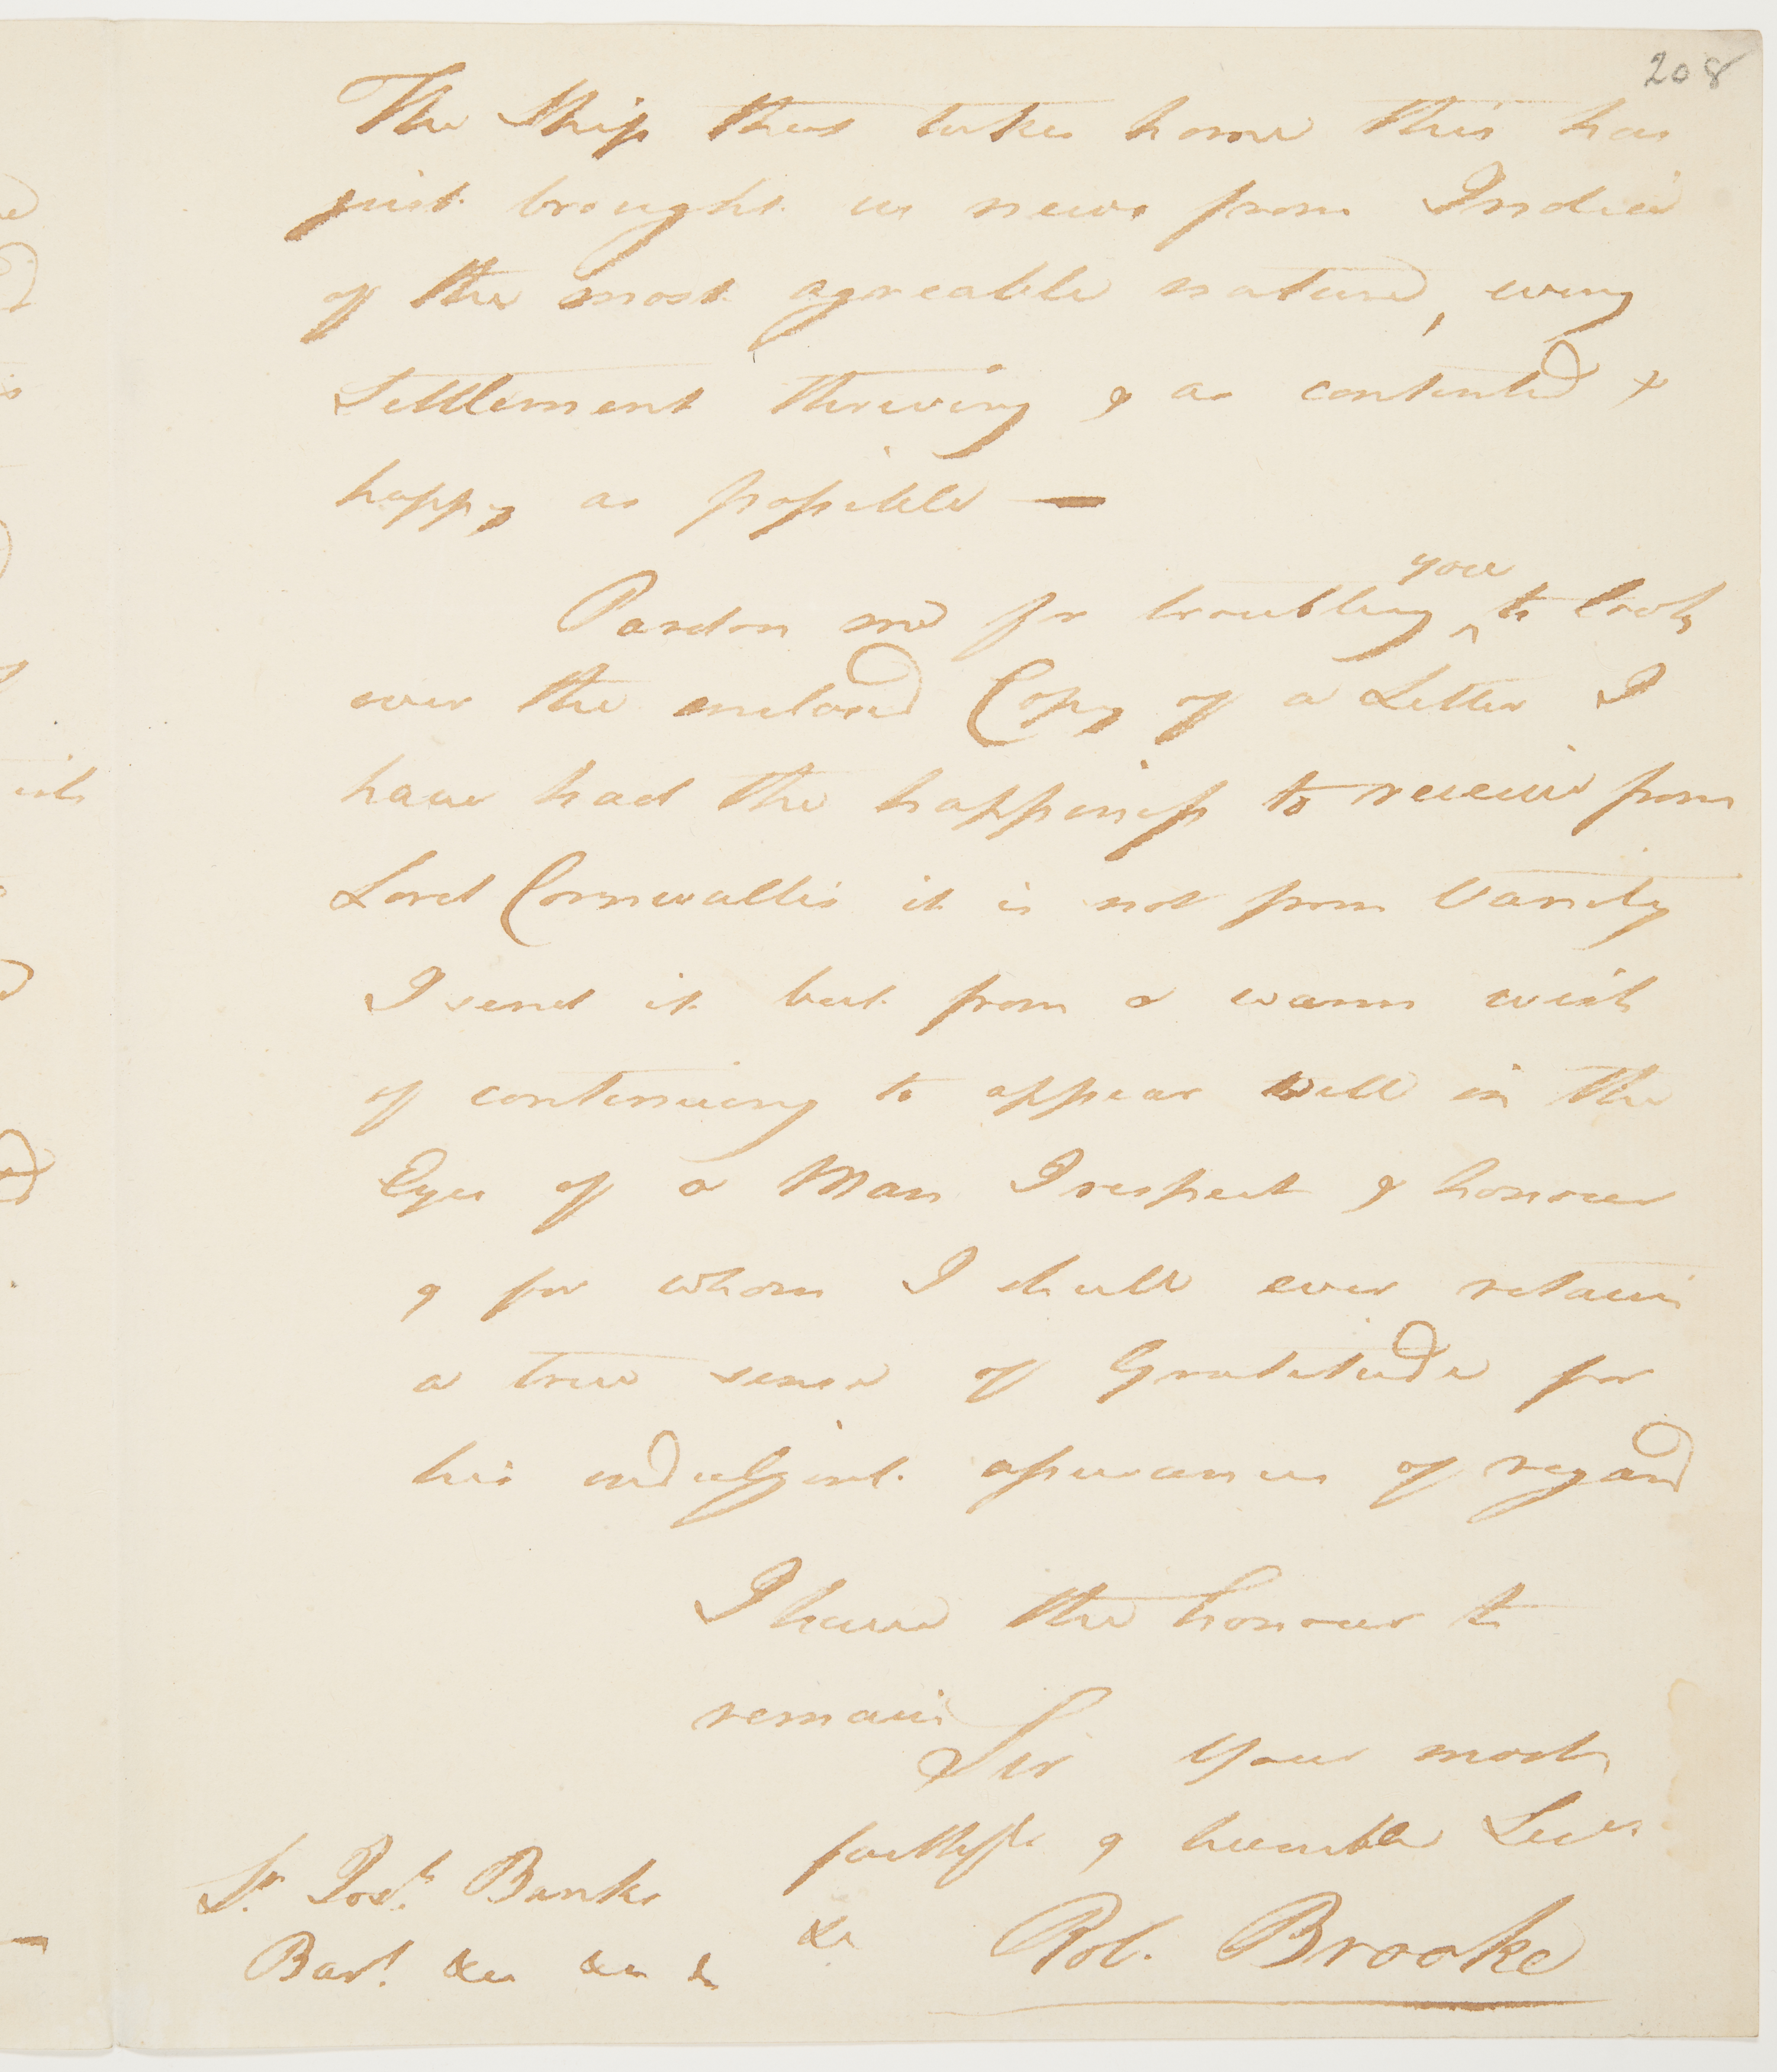 208
The Ship that takes home this has
just brought us news from India
of the most agreeable nature, every
Settlement thriving & as contented &
happy as possible —
you
Pardon me for troubling ^ to look
over the enclosed Copy of a Letter I
have had the happiness to receive from
Lord Cornwallis it is not from Vanity
I send it but from a warm wish
of continuing to appear well in the
Eyes of a Man I respect & honour
& for whom I shall ever retain
a true sense of Gratitude for
his indulgent assurances of regard
I have the honour to
remain
Sir your most
faithful & humble Serv
Sr. Josh. Banks
Bart. &c &c &c
&c
Rob. Brooke